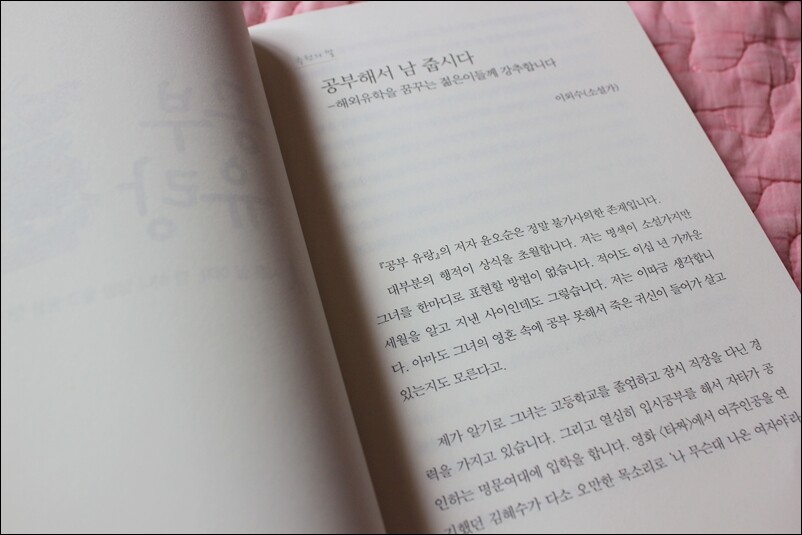 추천의 말
공부해서 남 줍시다
-해외유학을 꿈꾸는 젊은이들께 강추합니다
이외수(소설가)
『공부 유랑』의 저자 윤오순은 정말 불가사의한 존재입니다.
대부분의 행적이 상식을 초월합니다. 저는 명색이 소설가지만
그녀를 한마디로 표현할 방법이 없습니다. 적어도 이십 년 가까운
세월을 알고 지낸 사이인데도 그렇습니다. 저는 이따금 생각합니
다. 아마도 그녀의 영혼 속에 공부 못해서 죽은 귀신이 들어가 살고
있는지도 모른다고.
제가 알기로 그녀는 고등학교를 졸업하고 잠시 직장을 다닌 경
력을 가지고 있습니다. 그리고 열심히 입시공부를 해서 자타가 공
인하는 명문여대에 입학을 합니다. 영화 〈타짜〉에서 여주인공을 연
기했던 김혜수가 다소 오만한 목소리로 '나 무슨대 나온 여자야'라
공부
유랑